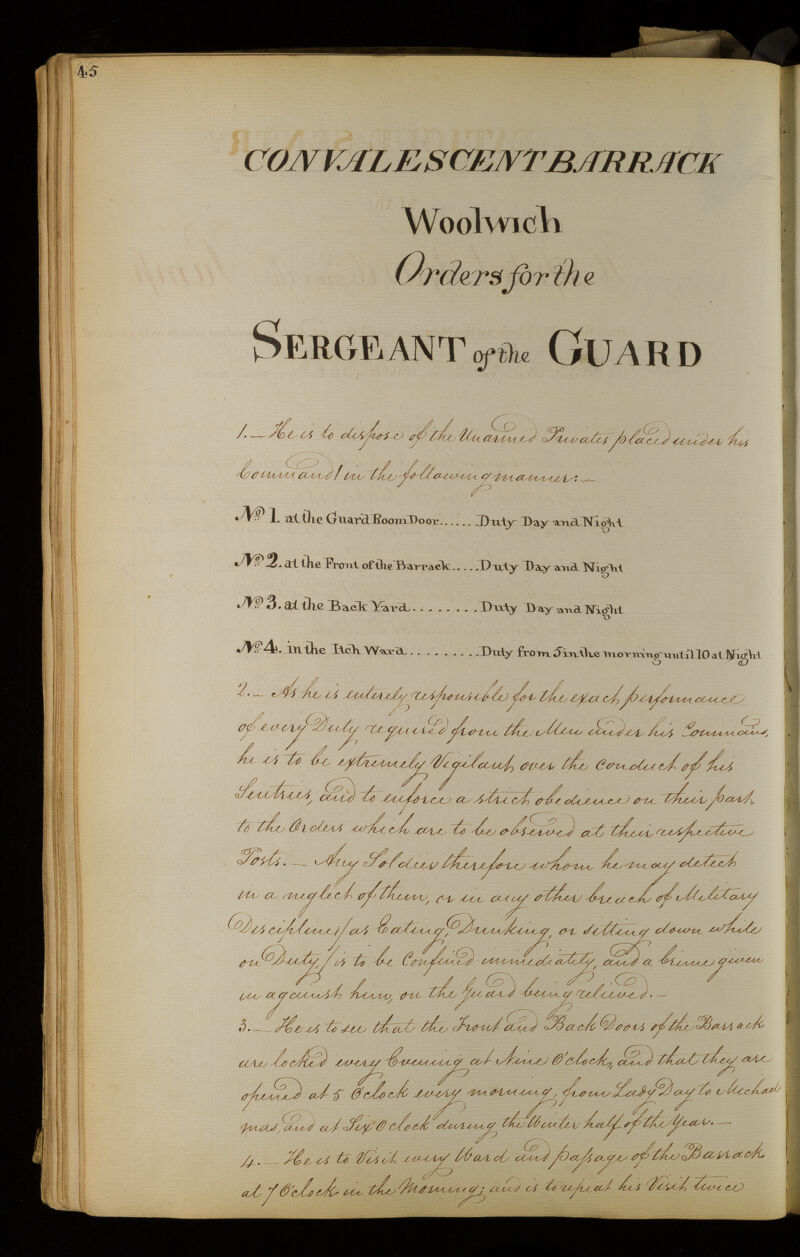 45
CONVALESCENT BARRACK
Woolwich
Orders for the
SERGEANT of the GUARD
1. — He is to dispose of the Unarmed Privates placed under his
Command in the following manner: —
No 1. at the Guard Room Door...... Duty Day and Night
No 2. at the Front of the Barrack..... Duty Day and Night
No 3. at the Back Yard......... Duty Day and Night
No 4. in the Itch Ward.......... Duty from 5 in the morning until 10 at Night
2. — As he is entirely responsible for the exact performance
of every Duty required from the Men under his Command,
he is to be extremely Vigilant over the conduct of his
Sentries, and to enforce a strict obedience on their part
to the Orders which are to be observed at their respective
Posts. — Any Soldier therefore whom he may detect
in a neglect of them, or in any other breach of Military
Discipline, (as Eating, Drinking, or sitting down while
on Duty,) is to be Confined immediately, and a Crime given
in against him, on the Guard being relieved. —
3. — He is to see that the Front and Back Doors of the Barrack
are locked every Evening at Nine O'Clock, and that they are
opened at 5 O'Clock every morning, from Lady Day to Michael
mas, and at Six O'Clock during the Winter half of the Year. —
4. — He is to Visit every Ward and passage of the Barrack
at 7 O'Clock in the Morning; and is to repeat his Visit twice